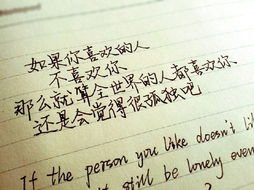 如果你喜欢的人
不喜欢你
那么就算全世界的人都喜欢你
还是会觉得很孤独吧
If the person you like doesn't
still be lonely even